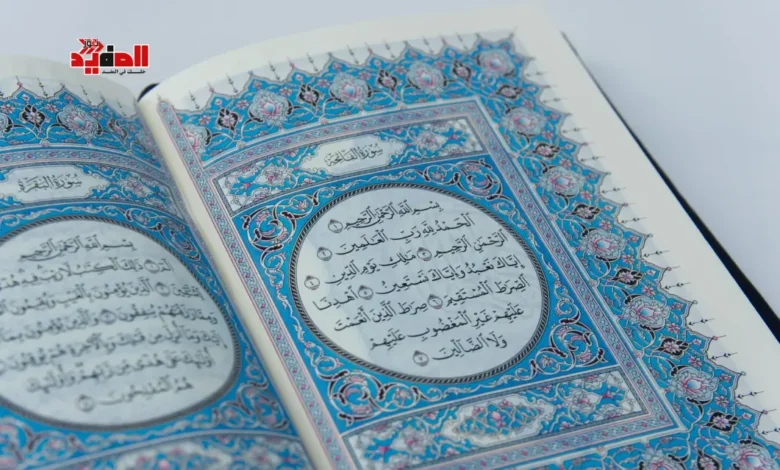 المفيد
نيوز
خلك في المفيد
سورة الفاتحة
بسم الله الرحمن الرحيم ١
الحمد لله رب العالمين ٢
الرحمن الرحيم ٣ ملك يوم الدين ٤
إياك نعبد وإياك نستعين ٥ اهدنا
الصراط المستقيم ٦ صراط الذين أنعمت
عليهم غير المغضوب عليهم
ولا الضالين ٧
سورة البقرة
بسم الله الرحمن الرحيم
الم ١ ذلك الكتاب لا ريب فيه هدى
للمتقين ٢ الذين يؤمنون بالغيب ويقيمون
الصلاة ومما رزقناهم ينفقون ٣ والذين يؤمنون بما
أنزل إليك وما أنزل من قبلك وبالآخرة هم يوقنون ٤
أولئك على هدى من ربهم وأولئك
هم المفلحون ٥